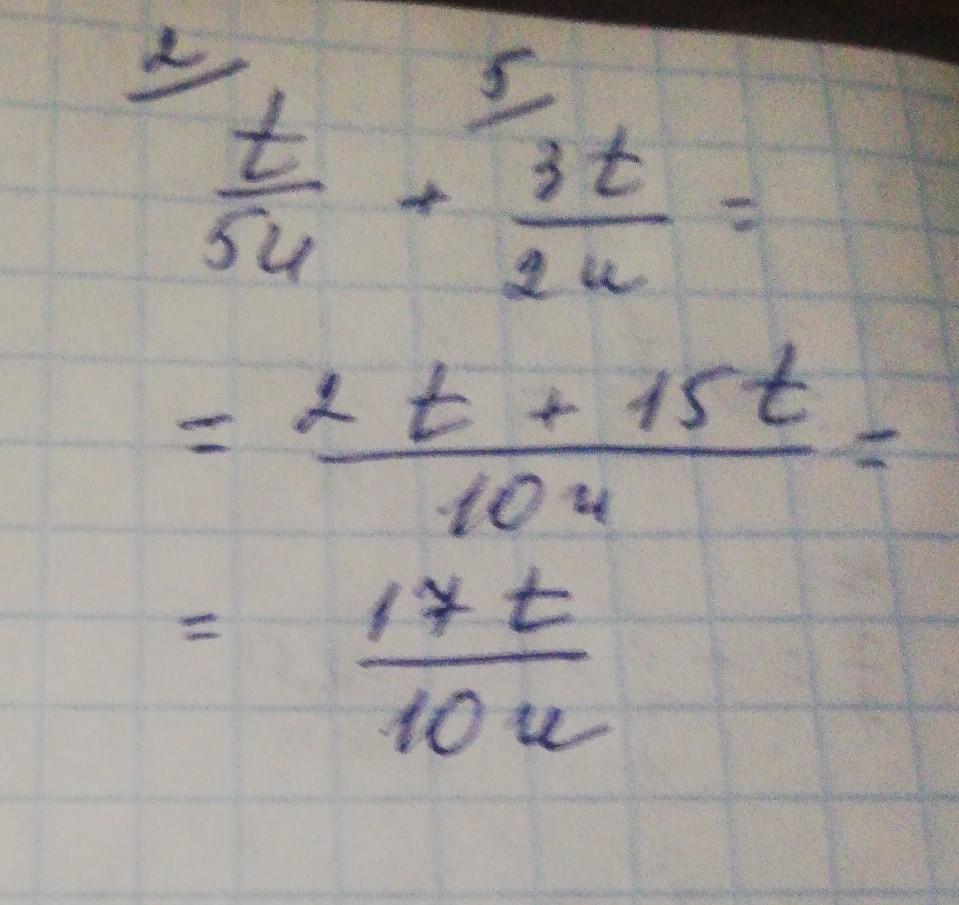 2/ t/5u + 5/ 3t/2u =
= (2t + 15t)/10u =
= 17t/10u